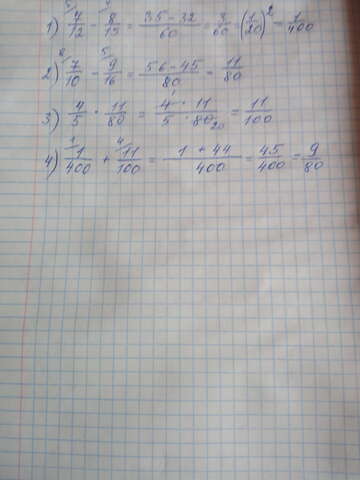 1) 7/12 - 8/15 = 35-32/60 = 3/60 · (1/20)² = 1/400
2) 7/10 - 9/16 = 56-45/80 = 11/80
3) 4/5 · 11/80 = 4 · 11/5 · 80 = 11/100
4) 1/400 + 11/100 = 1 + 44/400 = 45/400 = 9/80